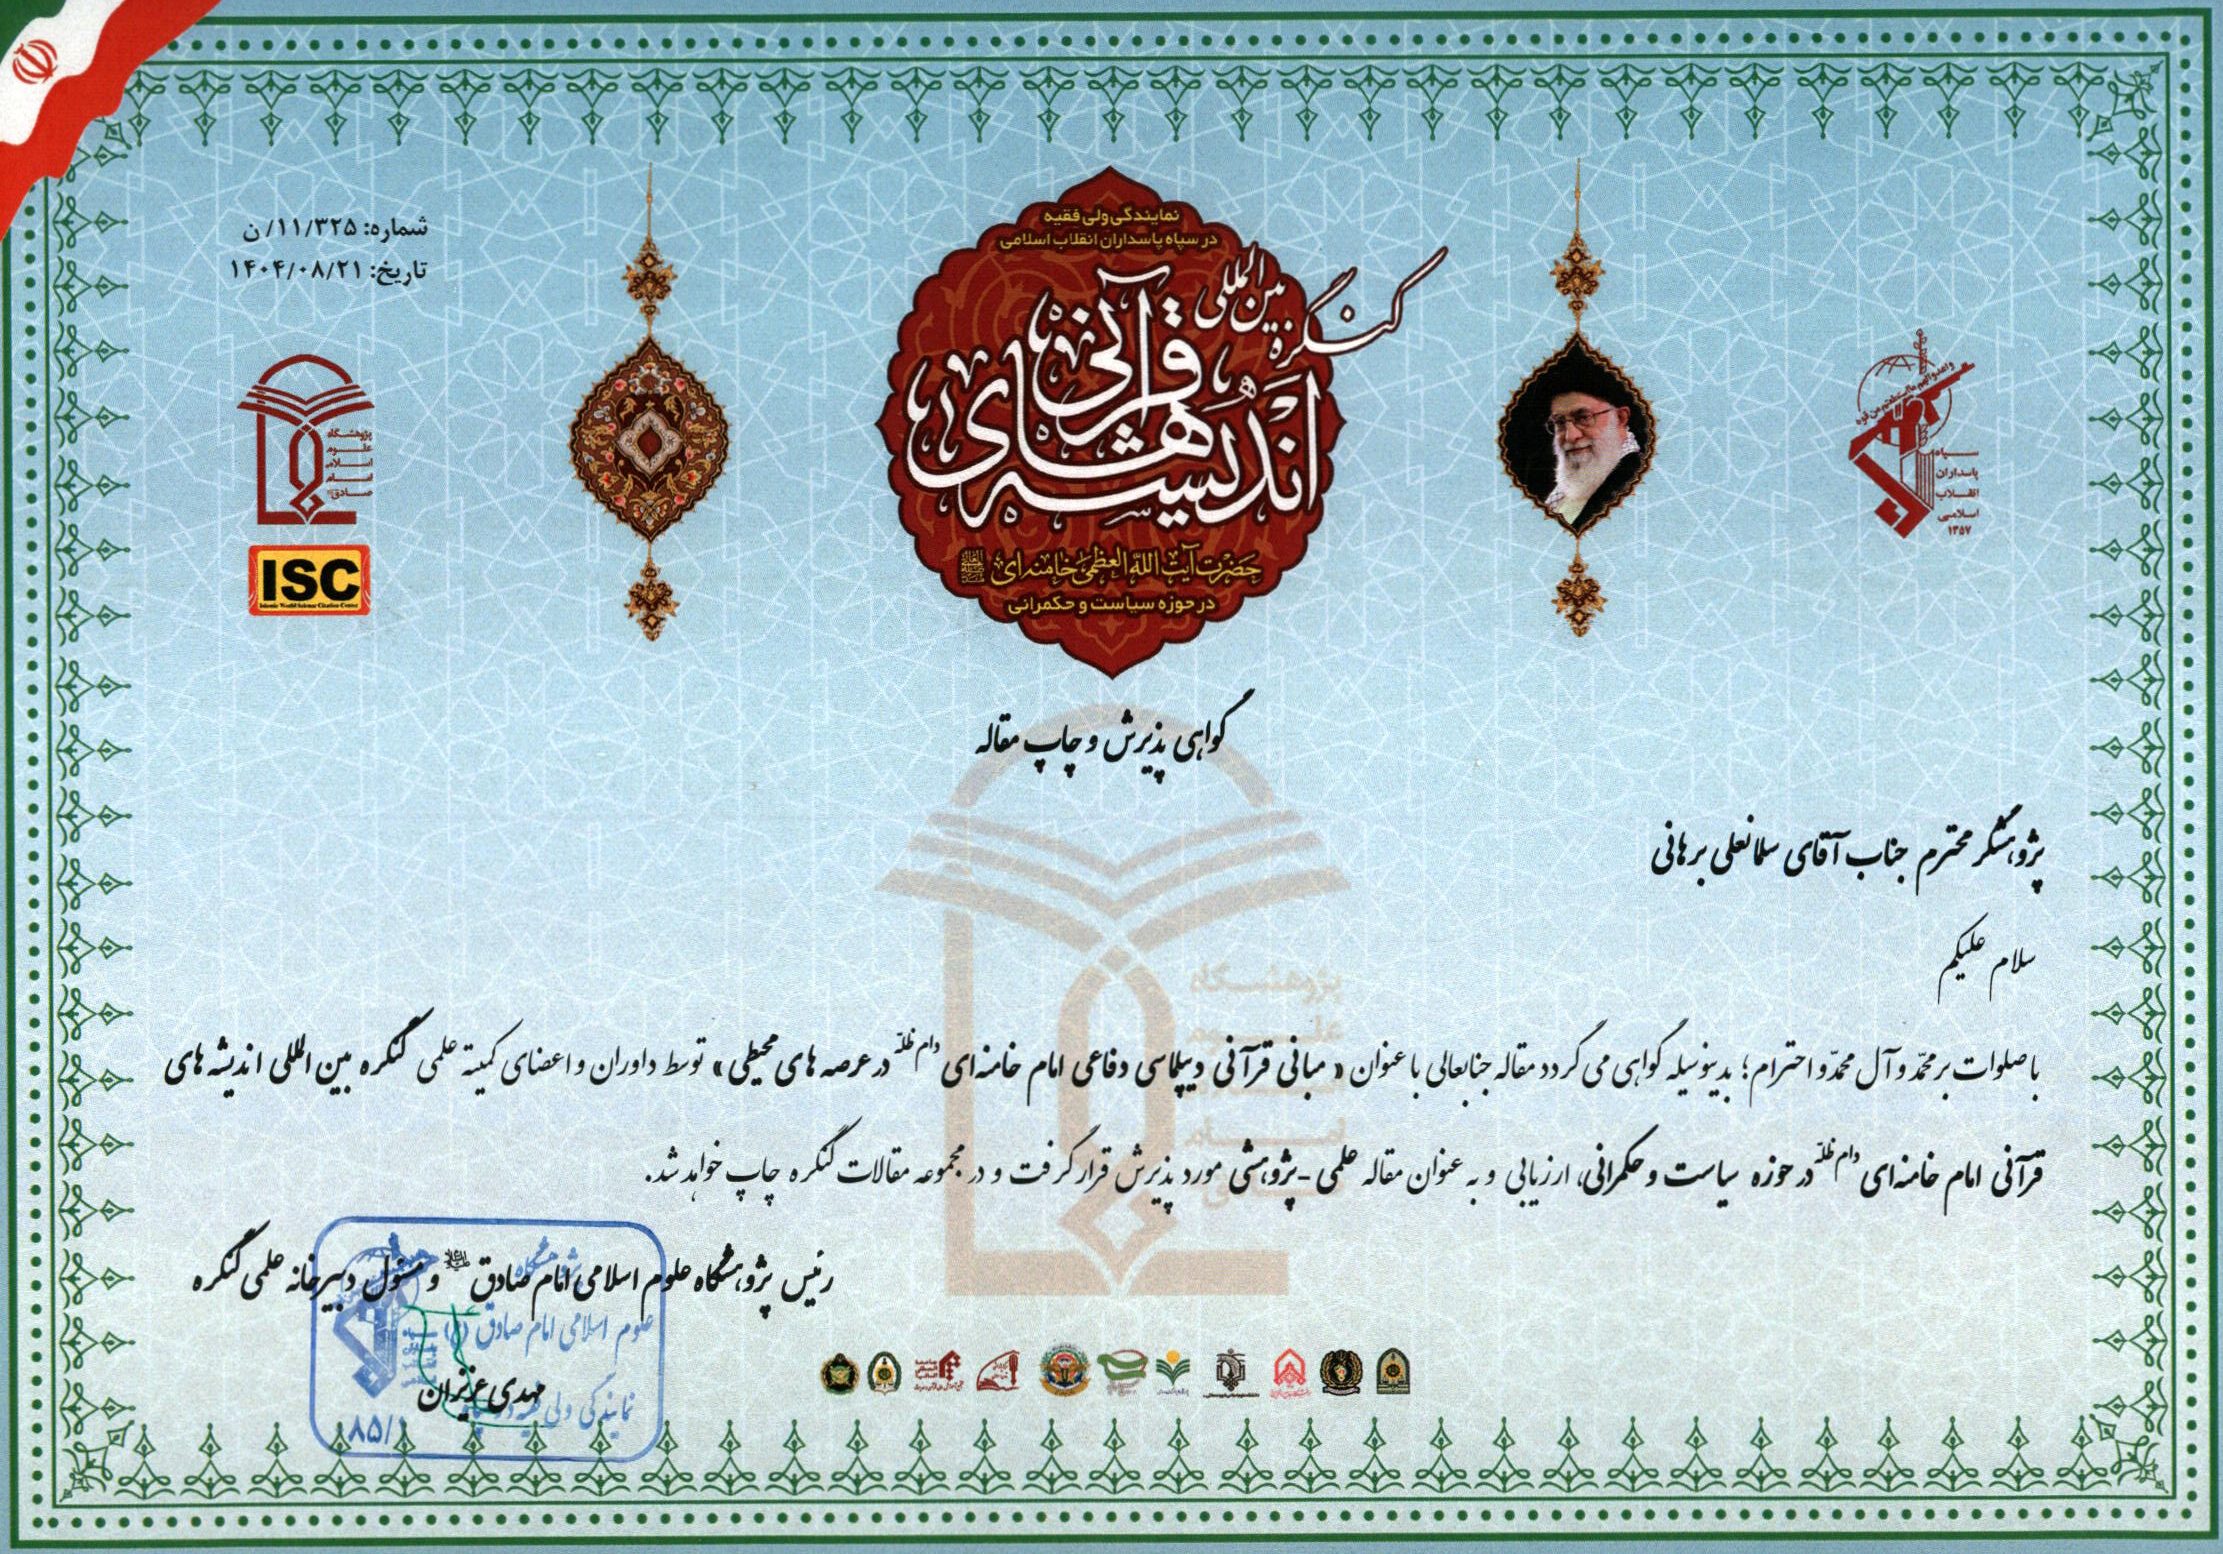 شماره: ۱۱/۳۲۵/ن
تاریخ: ۱۴۰۴/۰۸/۲۱
نمایندگی ولی فقیه
در سپاه پاسداران انقلاب اسلامی
کنگره بین المللی
اندیشه های قرآنی
حضرت آیت الله العظمی خامنه ای
در حوزه سیاست و حکمرانی
پژوهشگاه
علوم
اسلامی
امام
صادق
ISC
Islamic World Science Citation Center
سپاه
پاسداران
انقلاب
اسلامی
۱۳۵۷
گواهی پذیرش و چاپ مقاله
پژوهشگر محترم جناب آقای سلمانعلی برهانی
سلام علیکم
با صلوات بر محمّد و آل محمّد و احترام؛ بدینوسیله گواهی می گردد مقاله جنابعالی با عنوان « مبانی قرآنی دیپلماسی دفاعی امام خامنه ای دام ظلّه در عرصه های محیطی» توسط داوران و اعضای کمیته علمی کنگره بین المللی اندیشه های
قرآنی امام خامنه ای دام ظلّه در حوزه سیاست و حکمرانی، ارزیابی و به عنوان مقاله علمی - پژوهشی مورد پذیرش قرار گرفت و در مجموعه مقالات کنگره چاپ خواهد شد.
رئیس پژوهشگاه علوم اسلامی امام صادق و مسئول دبیرخانه علمی کنگره
مهدی عزیزان
پژوهشگاه
علوم اسلامی امام صادق (ع)
نمایندگی ولی فقیه در سپاه